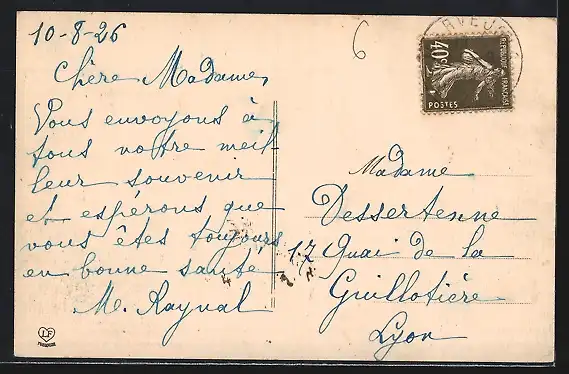 10-8-26
6
Chère Madame,
Vous envoyons à
tous notre meil
leur souvenir
et espérons que
vous êtes toujours
en bonne santé
M. Raynal
LF
RVEJ
REPUBLIQUE FRANÇAISE
40c
POSTES
Madame
Dessertenne
17 Quai de la
Guillotière
Lyon